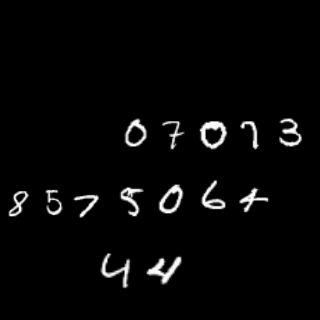 07073
8575064
44